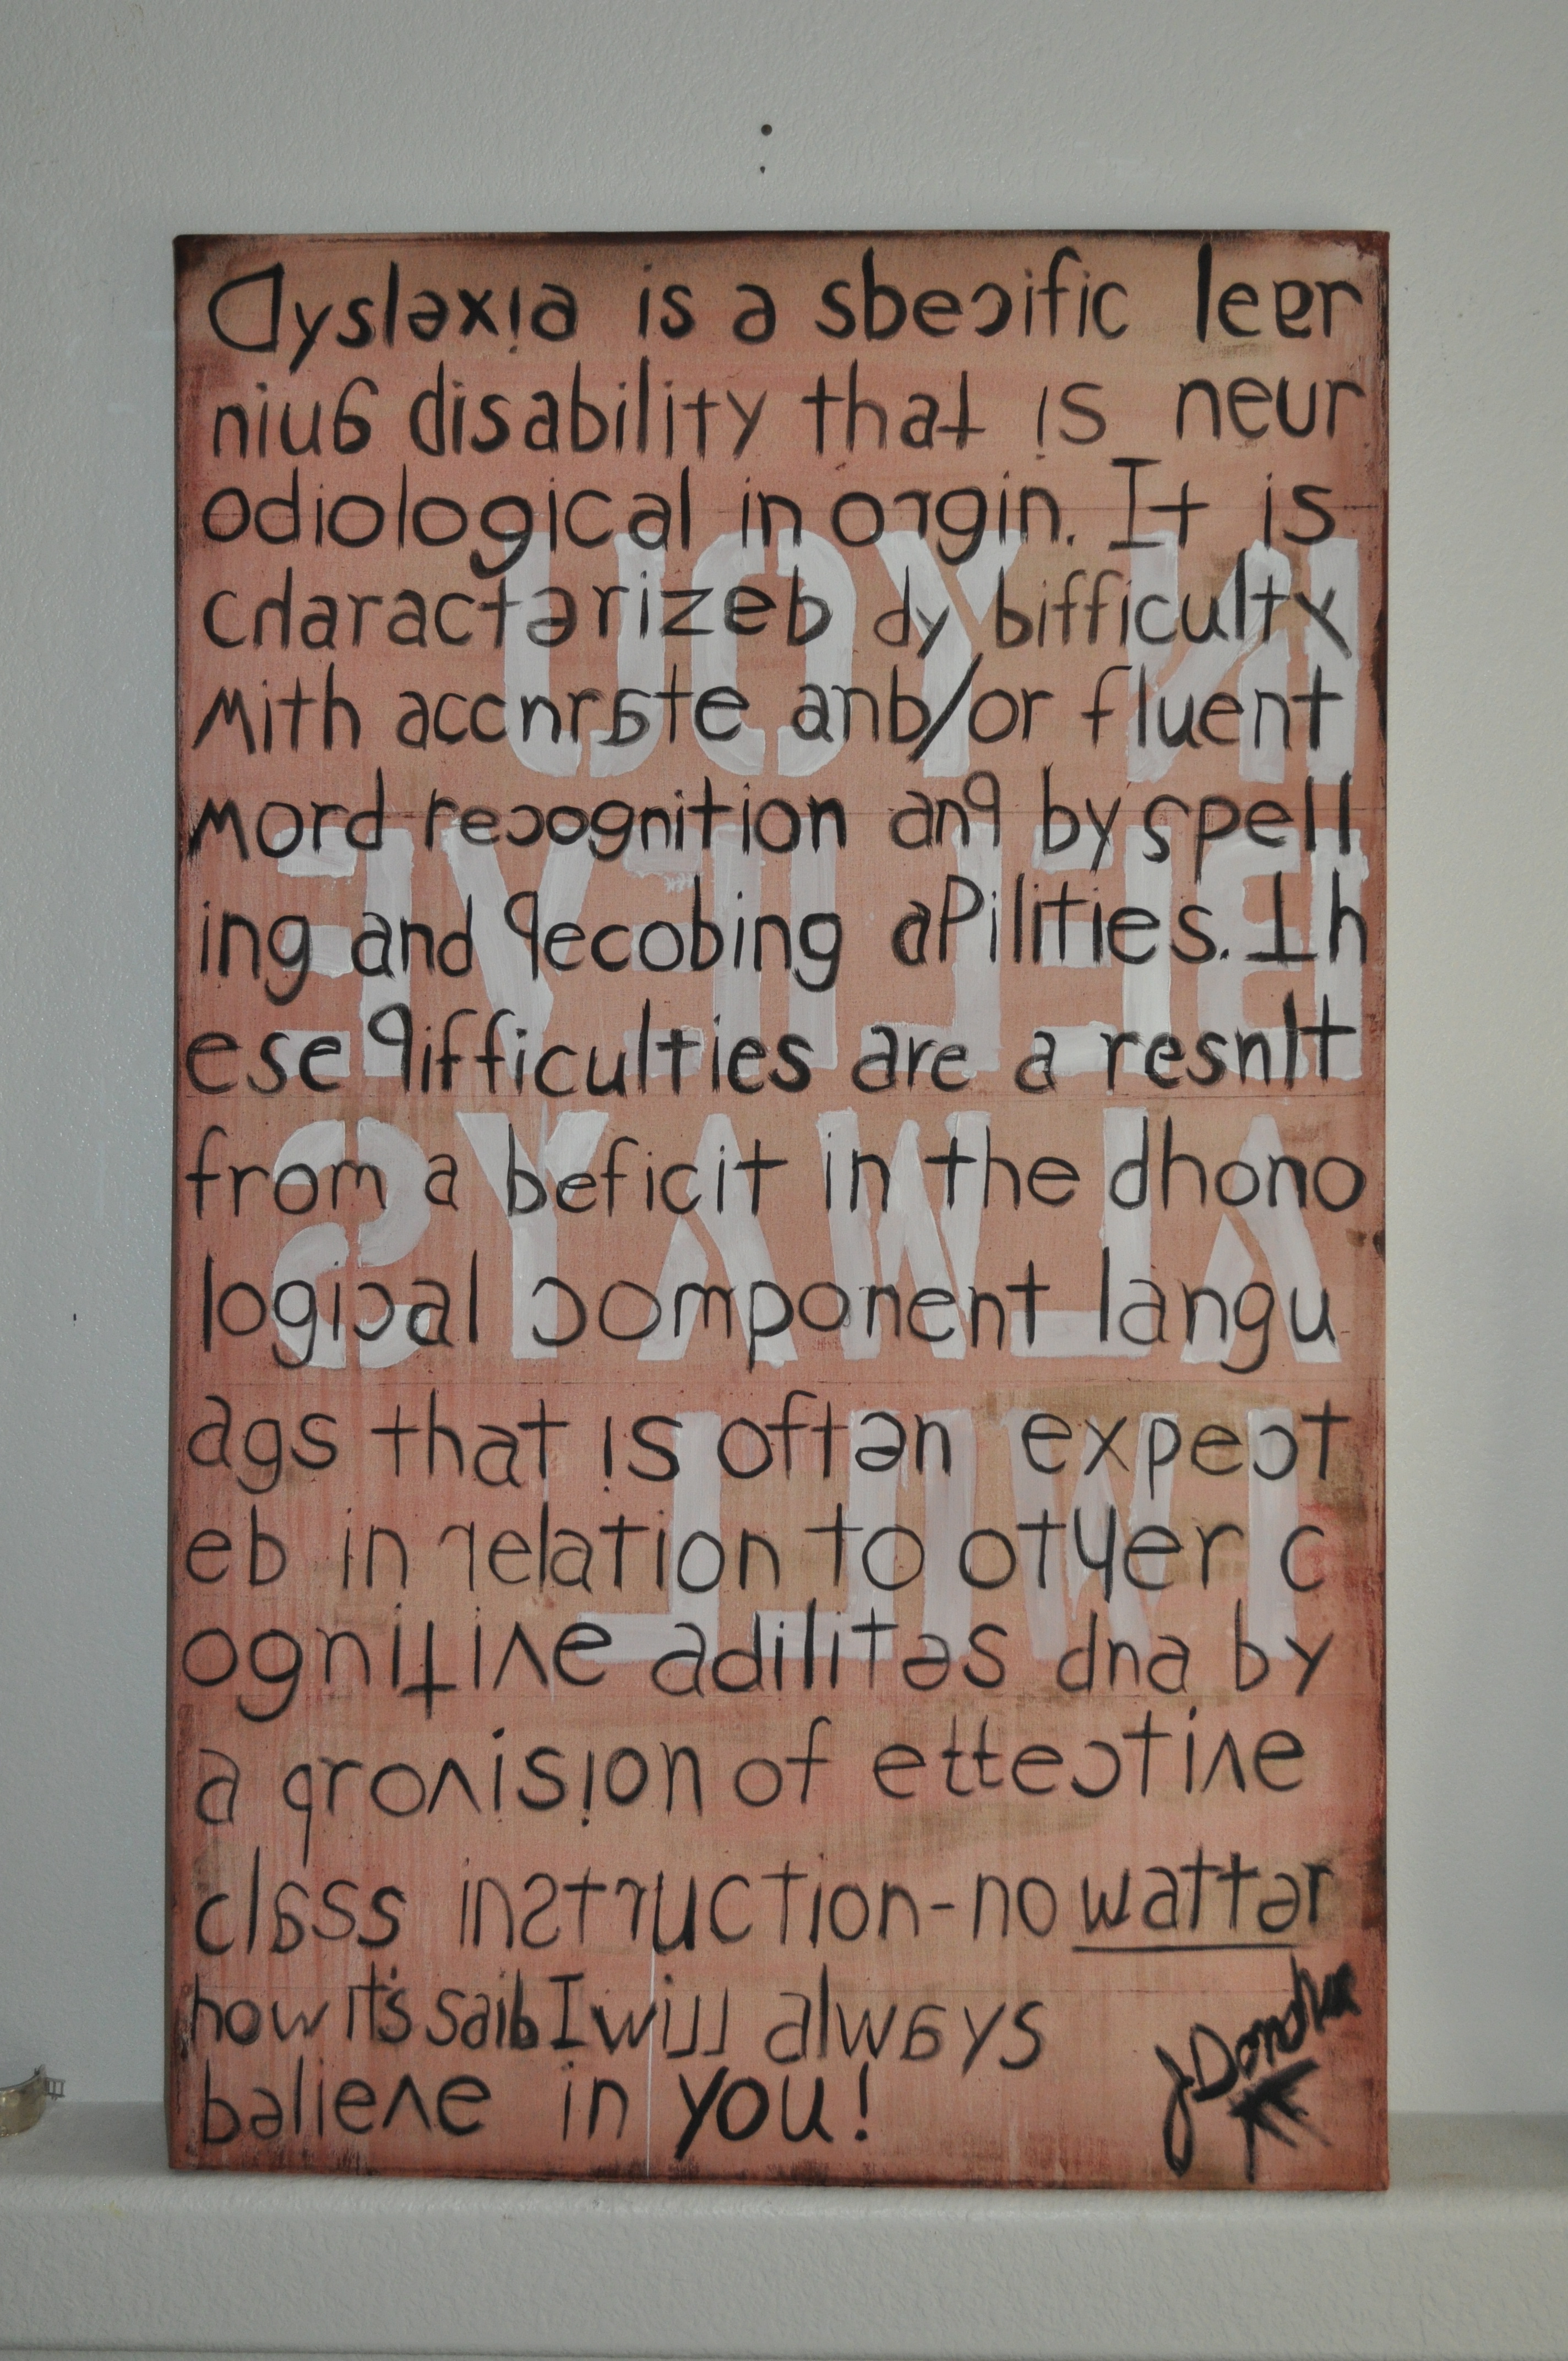 Dyslexia is a sbecific leer
niug disability that is neur
odiological in orgin. It is
cdaracterizeb dy bifficulty
with accnrate anb/or fluent
mord recognition and by spell
ing and qecobing aPilities. Th
ese qifficulties are a resnlt
from a beficit in the dhono
logical component langu
ags that is often expect
eb in relation to otyer c
ognitive adilites dna by
a qrovision of ettective
class instruction-no watter
how it's saib I will always
believe in you!
J. Donohue
IN YOU
BELIEVE
ALWAYS
I WILL